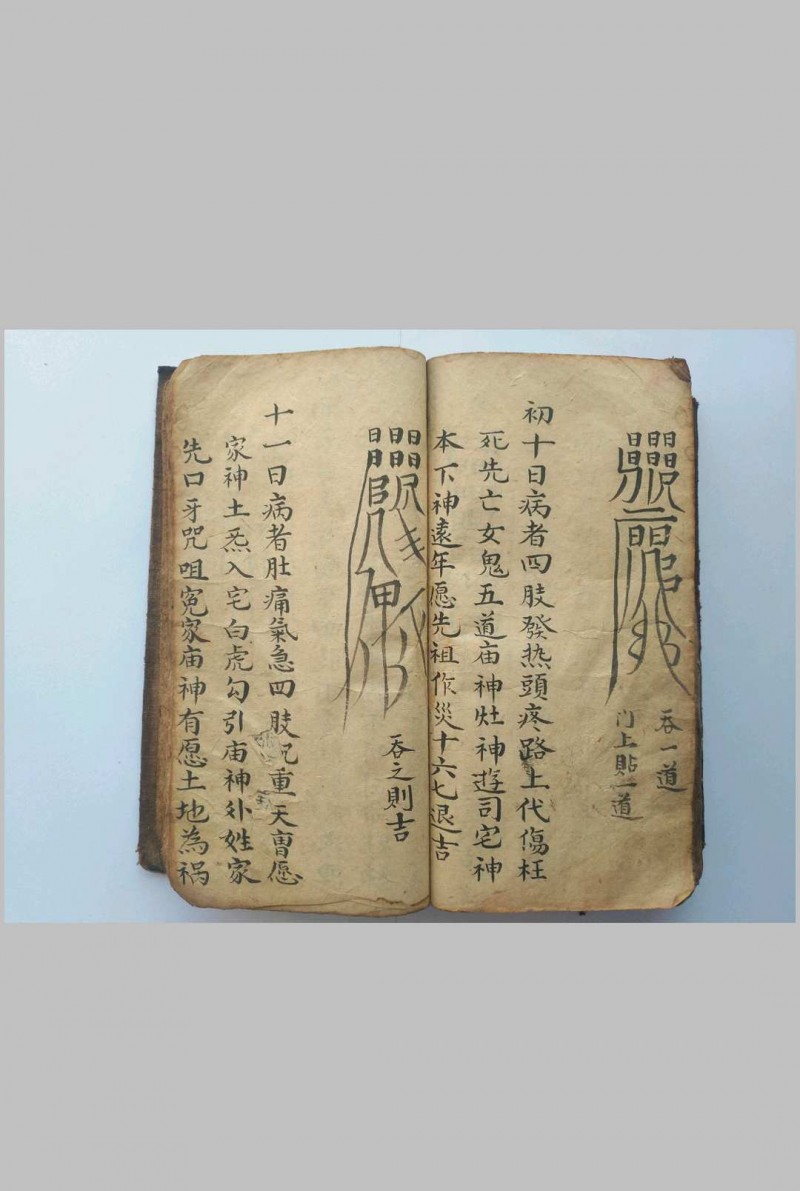 吞一道
门上貼一道
初十日病者四肢發热頭疼路上代傷枉
死先亡女鬼五道庙神灶神遊司宅神
本下神遠年愿先祖作災十六七退吉
吞之則吉
十一日病者肚痛氣急四肢沉重天曹愿
家神土炁入宅白虎勾引庙神外姓家
先口牙咒咀冤家庙神有愿土地為祸